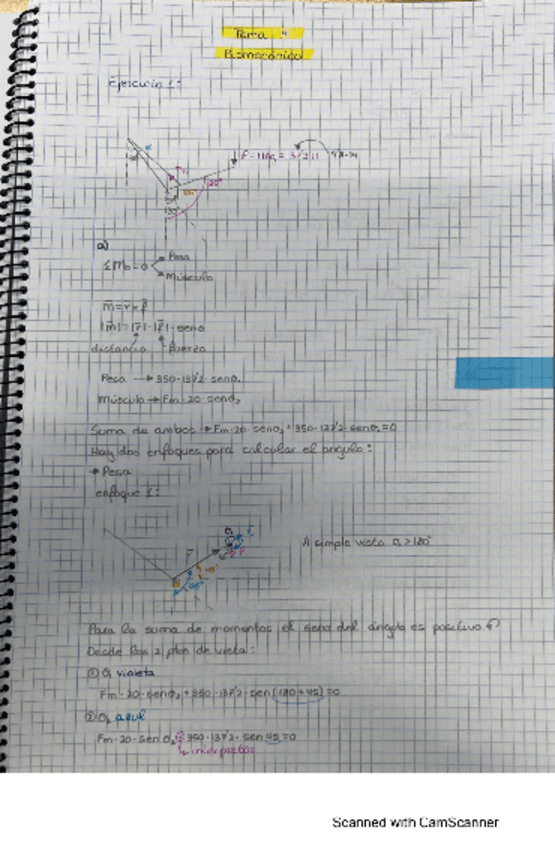 Tema 4
Biomecánica
Ejercicio 1:
a)
ΣM₀=0
Peso
Músculo
m̄=r̄×f̄
|m̄|=|r̄|·|f̄|·senθ
distancia fuerza
Peso → 350·137'2·senθ₁
músculo → Fm·20·senθ₂
Suma de ambos → Fm·20·senθ₂+350·137'2·senθ₁=0
Hay dos enfoques para calcular el ángulo:
→ Peso
enfoque 1:
A simple vista θ₁>180°
Para la suma de momentos el seno del ángulo es positivo.
Desde los 2 ptos de vista:
① θ₁ violeta
Fm·20·senθ₂+350·137'2·sen(180+45)=0
② θ₁ azul
Fm·20·sen θ₂ 350·137'2·sen 45=0
interpretar
Scanned with CamScanner